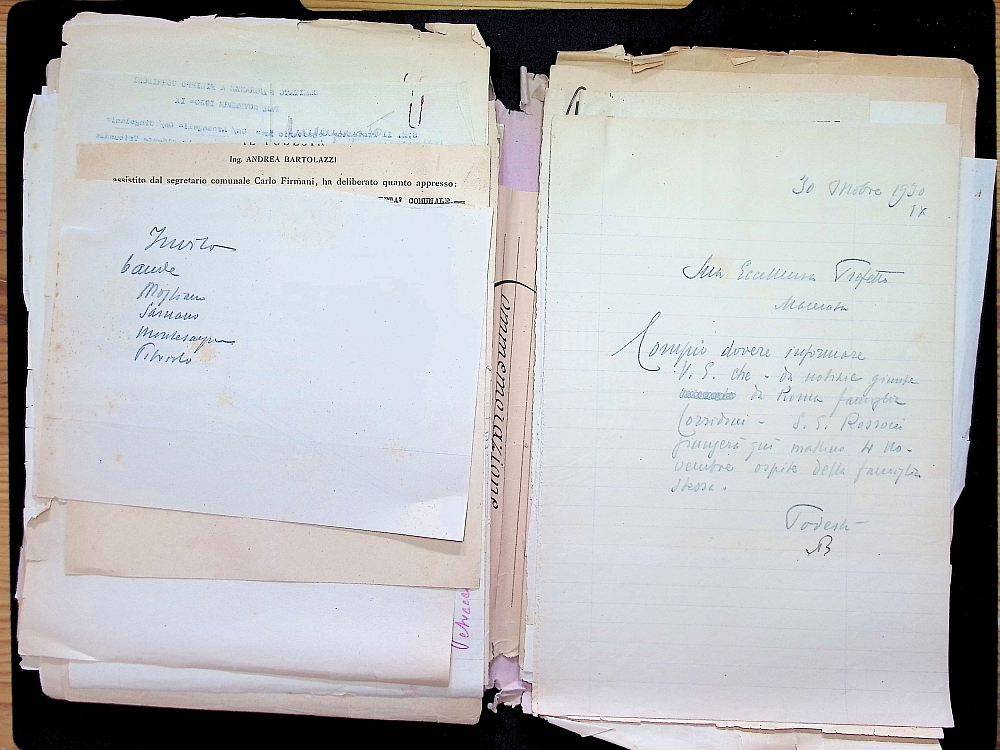 COMITATO ONORANZE A FILIPPO CORRIDONI
IL PODESTÀ
Ing. ANDREA BARTOLAZZI
assistito dal segretario comunale Carlo Firmani, ha deliberato quanto appresso:
COMUNALE
Invito
bande
Mogliano
Sarnano
Petriolo
Commemorazione
30 Ottobre 1930
IX
Sua Eccellenza Prefetto
Macerata
Compio dovere informare
V. E. che - da notizie giunte
da Roma famiglia
Corridoni - S. E. Rossoni
giungerà qui mattino 4 No-
vembre ospite della famiglia
stessa.
Podestà
AB